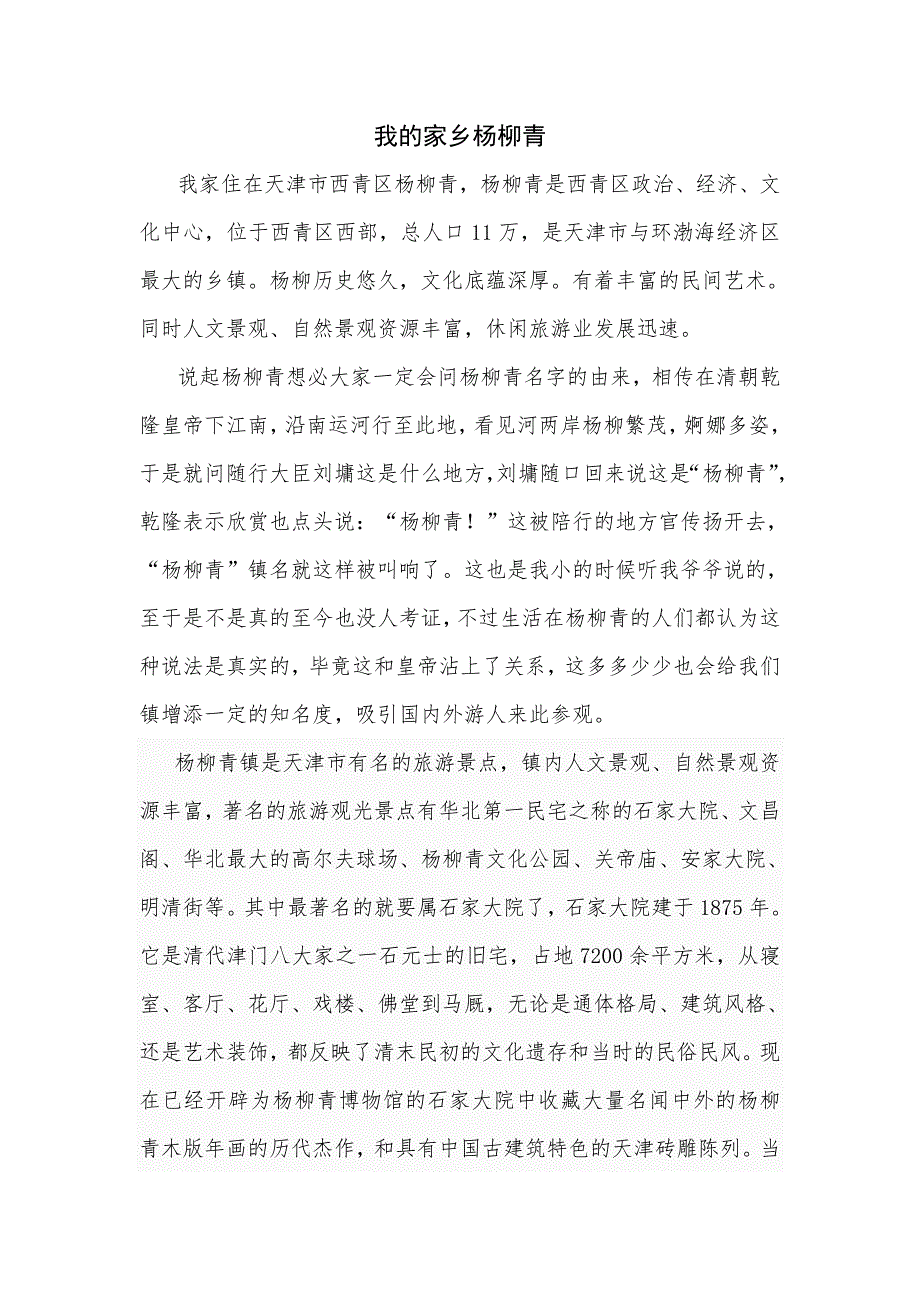 我的家乡杨柳青
我家住在天津市西青区杨柳青，杨柳青是西青区政治、经济、文
化中心，位于西青区西部，总人口 11 万，是天津市与环渤海经济区
最大的乡镇。杨柳历史悠久，文化底蕴深厚。有着丰富的民间艺术。
同时人文景观、自然景观资源丰富，休闲旅游业发展迅速。
说起杨柳青想必大家一定会问杨柳青名字的由来，相传在清朝乾
隆皇帝下江南，沿南运河行至此地，看见河两岸杨柳繁茂，婀娜多姿，
于是就问随行大臣刘墉这是什么地方，刘墉随口回来说这是“杨柳青”，
乾隆表示欣赏也点头说：“杨柳青！”这被陪行的地方官传扬开去，
“杨柳青”镇名就这样被叫响了。这也是我小的时候听我爷爷说的，
至于是不是真的至今也没人考证，不过生活在杨柳青的人们都认为这
种说法是真实的，毕竟这和皇帝沾上了关系，这多多少少也会给我们
镇增添一定的知名度，吸引国内外游人来此参观。
杨柳青镇是天津市有名的旅游景点，镇内人文景观、自然景观资
源丰富，著名的旅游观光景点有华北第一民宅之称的石家大院、文昌
阁、华北最大的高尔夫球场、杨柳青文化公园、关帝庙、安家大院、
明清街等。其中最著名的就要属石家大院了，石家大院建于 1875 年。
它是清代津门八大家之一石元士的旧宅，占地 7200 余平方米，从寝
室、客厅、花厅、戏楼、佛堂到马厩，无论是通体格局、建筑风格、
还是艺术装饰，都反映了清末民初的文化遗存和当时的民俗民风。现
在已经开辟为杨柳青博物馆的石家大院中收藏大量名闻中外的杨柳
青木版年画的历代杰作，和具有中国古建筑特色的天津砖雕陈列。当